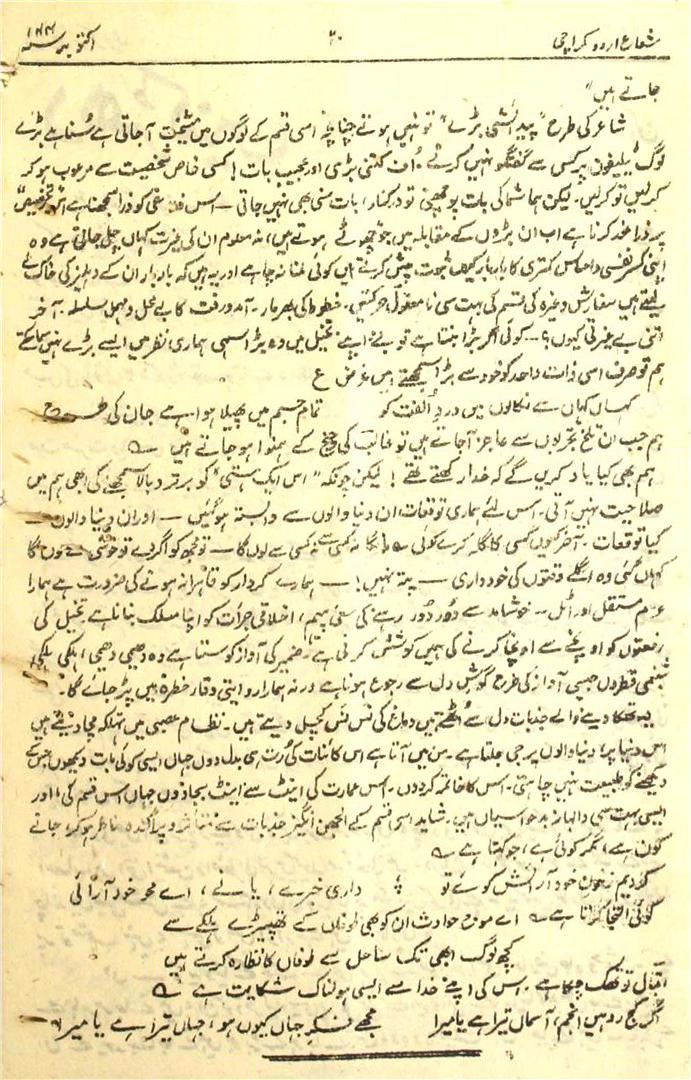 شعاع اردو کراچی ۲۰ اکتوبر سنہ
جاتے ہیں"
شاعر کی طرح "پیدائشی بڑے" تو نہیں ہوتے چنانچہ اسی قسم کے لوگوں میں مشیخت آجاتی ہے سُنا ہے بڑے
لوگ ٹیلیفون پر کسی سے گفتگو نہیں کرتے۔ اُن کتنی بڑی اور عجیب بات! کسی خاص شخصیت سے مرعوب ہو کر
کرلیں تو کرلیں۔ لیکن ہما شما کی بات پوچھنی تو درکنار، بات سنی بھی نہیں جاتی — اس کو ذرا سمجھنا ہے
پر ذرا غور کرنا ہے اب ان بڑوں کے مقابلہ میں جو چھوٹے ہوتے ہیں، نہ معلوم ان کی غیرت کہاں چلی جاتی ہے وہ
اپنی کسر نفسی و احساس کمتری کا بار بار ثبوت پیش کرتے ہیں کوئی ملنا نہ چاہے اور یہ ہیں کہ بار بار ان کے دہلیز کی خاک لے
لیتے ہیں سفارش وغیرہ کی قسم کی بہت سی نامعقول حرکتیں۔ خطوط کی بھرمار۔ آمدورفت کا بے محل و مہمل سلسلہ۔ آخر
اتنی بے غیرتی کیوں؟ ... کوئی اگر بڑا بنتا ہے تو بنے اپنے تخیل میں وہ بڑا سہی ہماری نظر میں ایسے بڑے نہیں سما سکتے
ہم تو صرف اسی ذات واحد کو خود سے بڑا سمجھتے ہیں غرض ع
کہاں کہاں سے نکالوں میں دردِ اُلفت کو تمام جسم میں پھیلا ہوا ہے جان کی طرح
ہم جب ان تلخ تجربوں سے عاجز آجاتے ہیں تو غالب کی چیخ کے ہمنوا ہو جاتے ہیں ؎
ہم بھی کیا یاد کریں گے کہ خدا رکھتے تھے! لیکن چونکہ "اس ایک ہستی" کو برتر و بالا سمجھنے کی ابھی ہم میں
صلاحیت نہیں آتی۔ اس لئے ہماری توقعات ان دنیا والوں سے وابستہ ہو گئیں — اور ان دنیا والوں —
کیا توقعات۔ آخر کیوں کسی کا گلہ کرے کوئی ؎ نہ کسی سے لوں گا — تو مجھ کو اگر دے تو خوشی سے لوں گا
کہاں گئی وہ اگلے وقتوں کی خودداری — پتہ نہیں! — ہمارے کردار کو قاہرانہ ہونے کی ضرورت ہے ہمارا
عزم مستقل اور اٹل — خوشامد سے دُور دُور رہنے کی سعئ پیہم، اخلاقی جرأت کو اپنا مسلک بنانا ہے تخیل کی
رفعتوں کو اونچے سے اونچا کرنے کی ہمیں کوشش کرنی ہے ضمیر کی آواز کو سننا ہے وہ دھیمی دھیمی، ہلکی ہلکی
شبنمی قطروں جیسی آواز کی طرح گوش دل سے رجوع ہونا ہے ورنہ ہمارا روایتی وقار خطرہ میں پڑ جائے گا۔
یہ تھکا دینے والے جذبات دل سے اُٹھتے ہیں دماغ کی نس نس کچل دیتے ہیں۔ نظام عصبی میں تہلکہ مچا دیتے ہیں
اس دنیا پر، دنیا والوں پر جی جلتا ہے۔ من میں آتا ہے اس کائنات کی رُت ہی بدل دوں جہاں ایسی کوئی بات دیکھوں جس کے
دیکھنے کو طبیعت نہیں چاہتی۔ اس کا خاتمہ کردوں۔ اس عمارت کی اینٹ سے اینٹ بجا دوں جہاں اس قسم کی، اور
ایسی بہت سی والہانہ بدحواسیاں ہیں۔ شاید اسی قسم کے الجھن انگیز جذبات سے متاثر و پراگندہ خاطر ہو کر، جانے
کون ہے، مگر کوئی ہے، جو کہتا ہے ؎
کردیم زخون خود آرائش کوئے تو ؛ داری خبرے، یا نے، اے محو خود آرائی
کوئی التجا کرتا ہے ؎ اے موج حوادث ان کو بھی طوفاں کے تھپیڑے ہلکے سے
کچھ لوگ ابھی تک ساحل سے طوفاں کا نظارہ کرتے ہیں
اقبال تو تھک چکا ہے۔ اس کی اپنے خدا سے ایسی ہولناک شکایت ہے ؎
اگر کج رو ہیں انجم، آسماں تیرا ہے یا میرا مجھے فکرِ جہاں کیوں ہو، جہاں تیرا ہے یا میرا